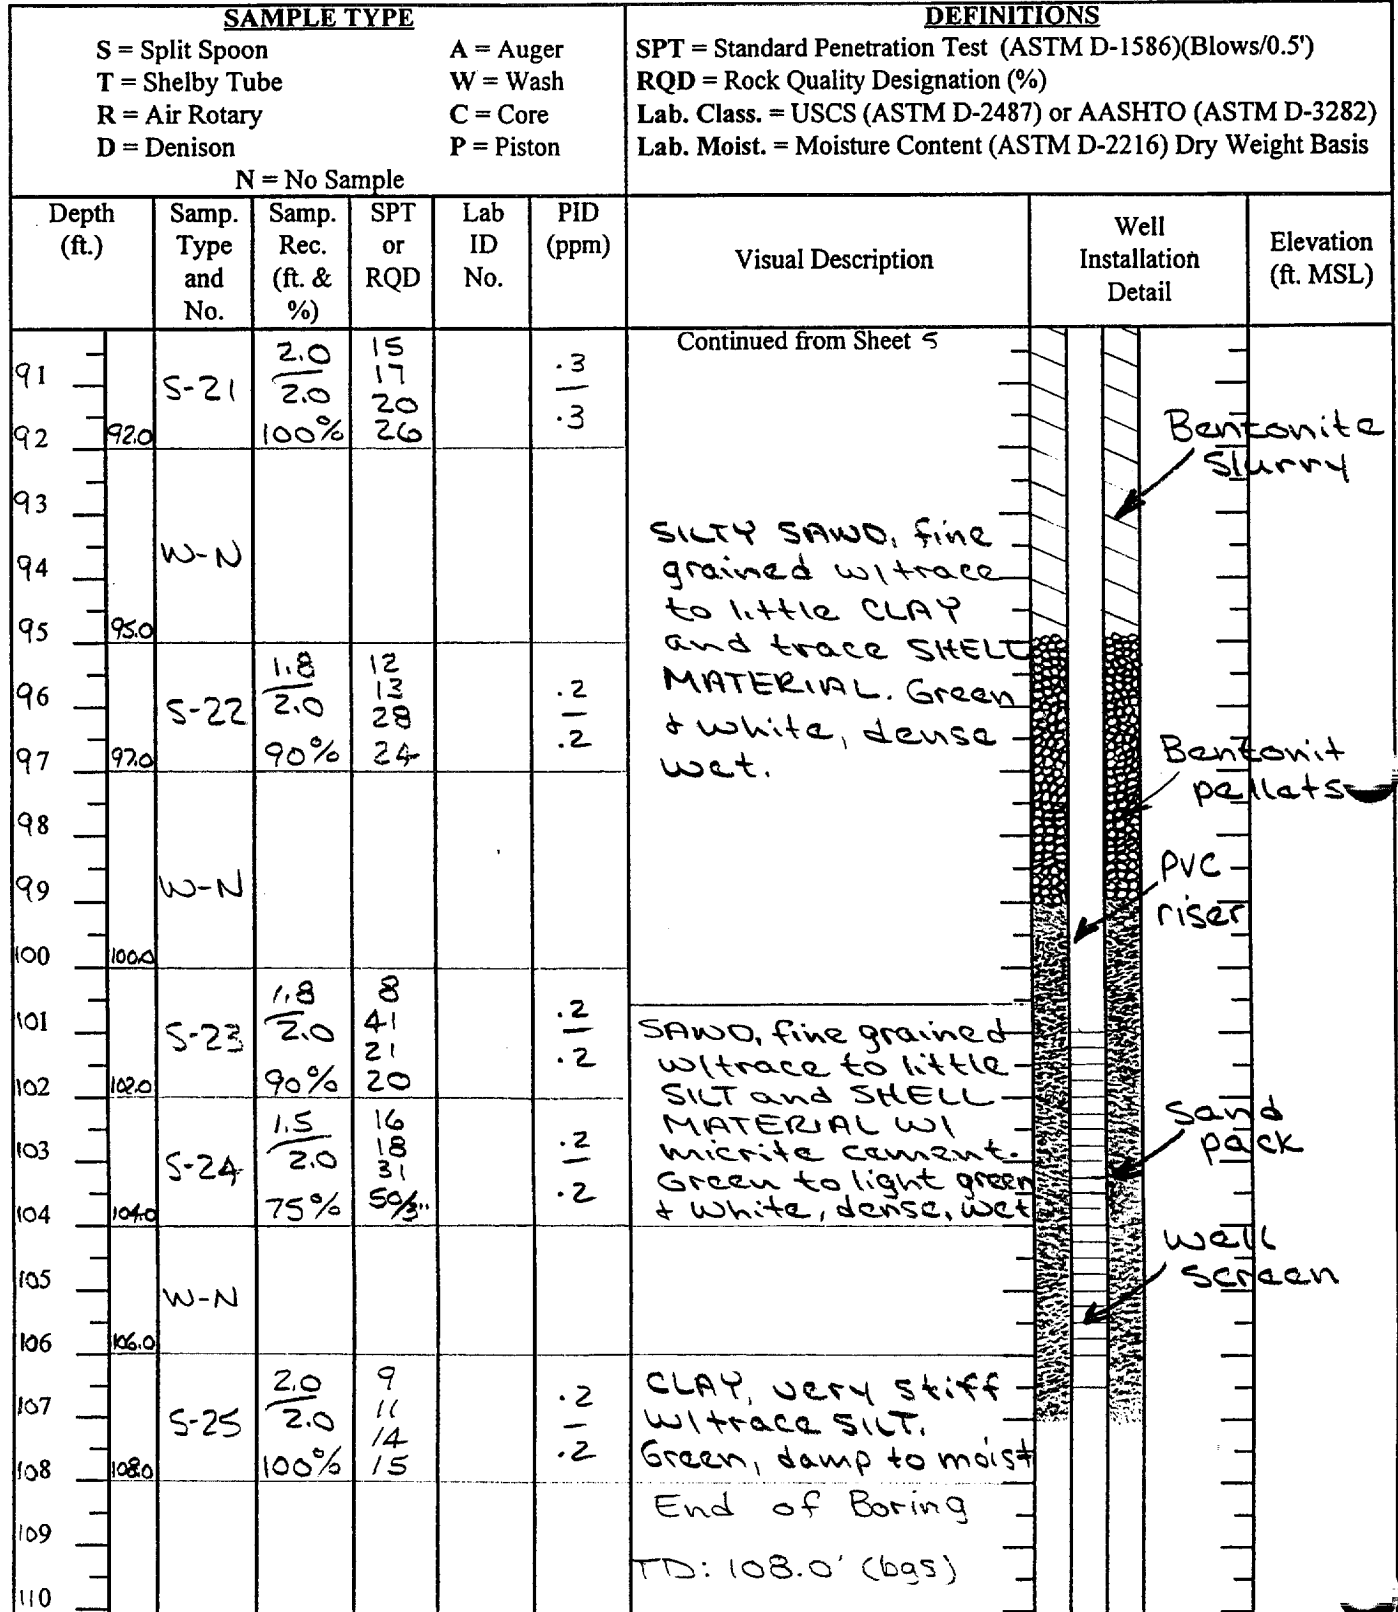 SAMPLE TYPE
S = Split Spoon A = Auger
T = Shelby Tube W = Wash
R = Air Rotary C = Core
D = Denison P = Piston
N = No Sample
DEFINITIONS
SPT = Standard Penetration Test (ASTM D-1586)(Blows/0.5')
RQD = Rock Quality Designation (%)
Lab. Class. = USCS (ASTM D-2487) or AASHTO (ASTM D-3282)
Lab. Moist. = Moisture Content (ASTM D-2216) Dry Weight Basis
Depth
(ft.)
Samp.
Type
and
No.
Samp.
Rec.
(ft. &
%)
SPT
or
RQD
Lab
ID
No.
PID
(ppm)
Visual Description
Well
Installation
Detail
Elevation
(ft. MSL)
Continued from Sheet 5
91
92
92.0
S-21
2.0
2.0
100%
15
17
20
26
.3
.3
Bentonite
Slurry
93
94
95
95.0
W-N
SILTY SAND, fine
grained w/trace
to little CLAY
and trace SHELL
MATERIAL. Green
& white, dense
wet.
96
97
97.0
S-22
1.8
2.0
90%
12
13
28
24
.2
.2
Bentonit
pellets
98
99
100
100.0
W-N
PVC
riser
101
102
102.0
S-23
1.8
2.0
90%
8
41
21
20
.2
.2
SAND, fine grained
w/trace to little
SILT and SHELL
MATERIAL W/
micrite cement.
Green to light green
& white, dense, wet
103
104
104.0
S-24
1.5
2.0
75%
16
18
31
50/3"
.2
.2
Sand
pack
well
screen
105
106
106.0
W-N
107
108
108.0
S-25
2.0
2.0
100%
9
11
14
15
.2
.2
CLAY, very stiff
w/trace SILT.
Green, damp to moist
End of Boring
109
TD: 108.0' (bgs)
110